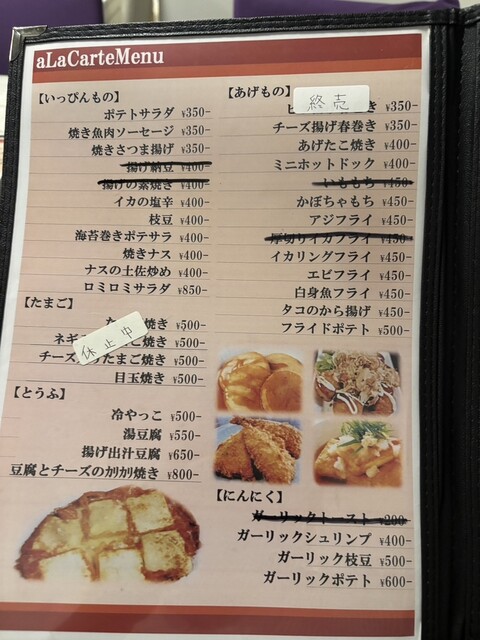 aLaCarteMenu
【いっぴんもの】
ポテトサラダ ¥350-
焼き魚肉ソーセージ ¥350-
焼きさつま揚げ ¥350-
揚げ納豆 ¥400-
揚げの素焼き ¥400-
イカの塩辛 ¥400-
枝豆 ¥400-
海苔巻きポテサラ ¥400-
焼きナス ¥400-
ナスの土佐炒め ¥400-
ロミロミサラダ ¥850-
【たまご】
た 焼き ¥500-
ネギ ご焼き ¥500-
チーズ たまご焼き ¥500-
休止中
目玉焼き ¥500-
【とうふ】
冷やっこ ¥500-
湯豆腐 ¥550-
揚げ出汁豆腐 ¥650-
豆腐とチーズのカリカリ焼き ¥800-
【あげもの】
終売
き ¥350-
チーズ揚げ春巻き ¥350-
あげたこ焼き ¥400-
ミニホットドック ¥400-
いももち ¥450-
かぼちゃもち ¥450-
アジフライ ¥450-
厚切りイカフライ ¥450-
イカリングフライ ¥450-
エビフライ ¥450-
白身魚フライ ¥450-
タコのから揚げ ¥450-
フライドポテト ¥500-
【にんにく】
ガーリックトースト ¥200-
ガーリックシュリンプ ¥400-
ガーリック枝豆 ¥500-
ガーリックポテト ¥600-